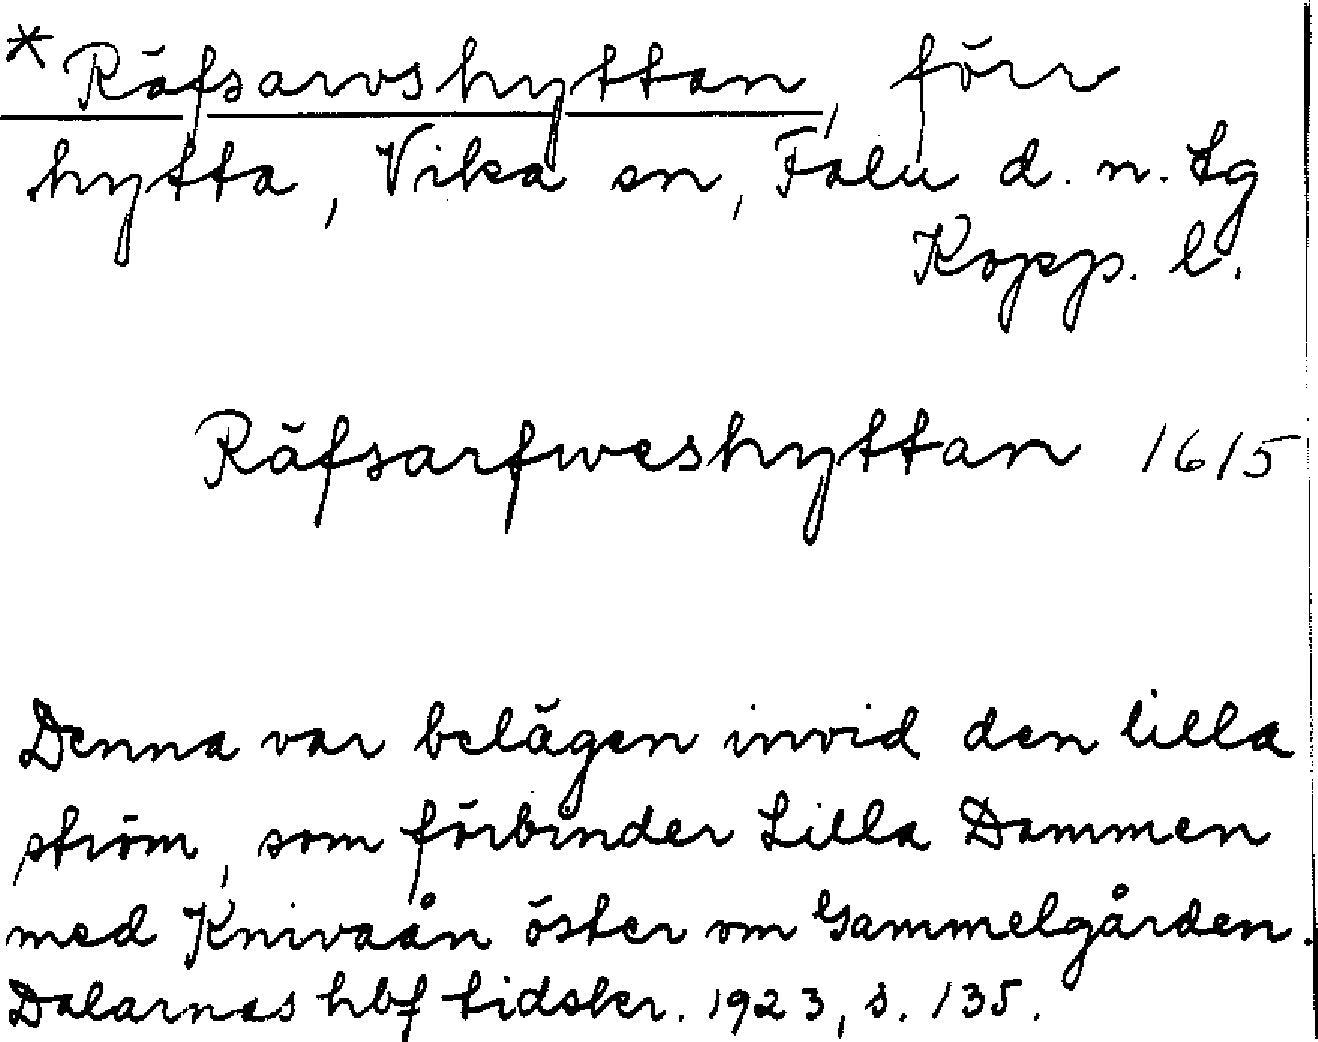 * Räfsarvshyttan, förr
hytta, Vika sn, Falu d. n. Lg
Kopp. l.
Räfsarfweshyttan 1615
Denna var belägen invid den lilla
ström, som förbinder Lilla Dammen
med Knivaån öster om Gammelgården.
Dalarnas hbf tidskr. 1923, s. 135.